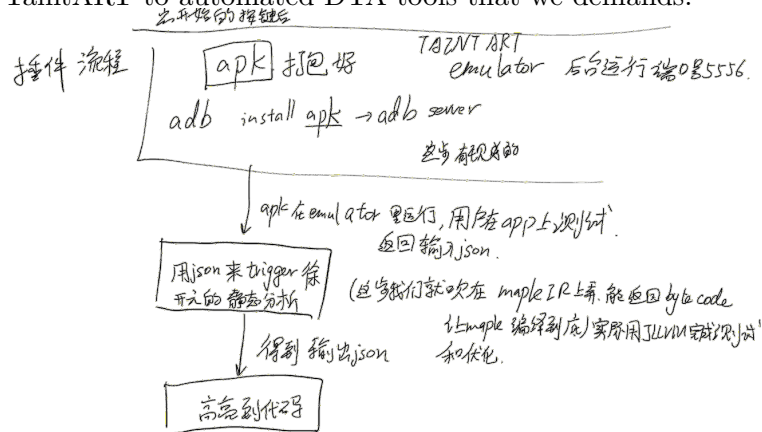 TaintART to automated DTA tools that we demands.
出开始的按键后
插件流程
apk 打包好
TAINT ART
emulator 后台运行 端口号5556.
adb install apk → adb server
这步有现成的
apk在emulator里运行,用户在app上测试
返回输入json.
用json来trigger徐
开元的静态分析
(这步我们就吹在 mapleIR上弄.能返回byte code
让maple编译到底)实际用LLVM完成测试
和优化.
得到 输出json
高亮到代码